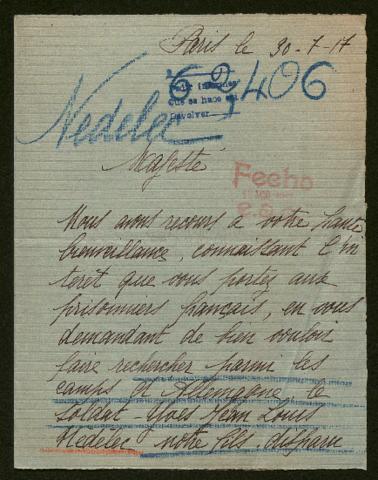 Paris le 30-7-17
62,406
Nedelec
que se hace
devolver
Majesté
Fecho
Nous avons recours à votre haute
bienveillance, connaissant l'in
terêt que vous portez aux
prisonniers français, en vous
demandant de bien vouloir
faire rechercher parmi les
camps d'Allemagne, le
soldat - Yves Jean Louis
Nedelec notre fils, disparu